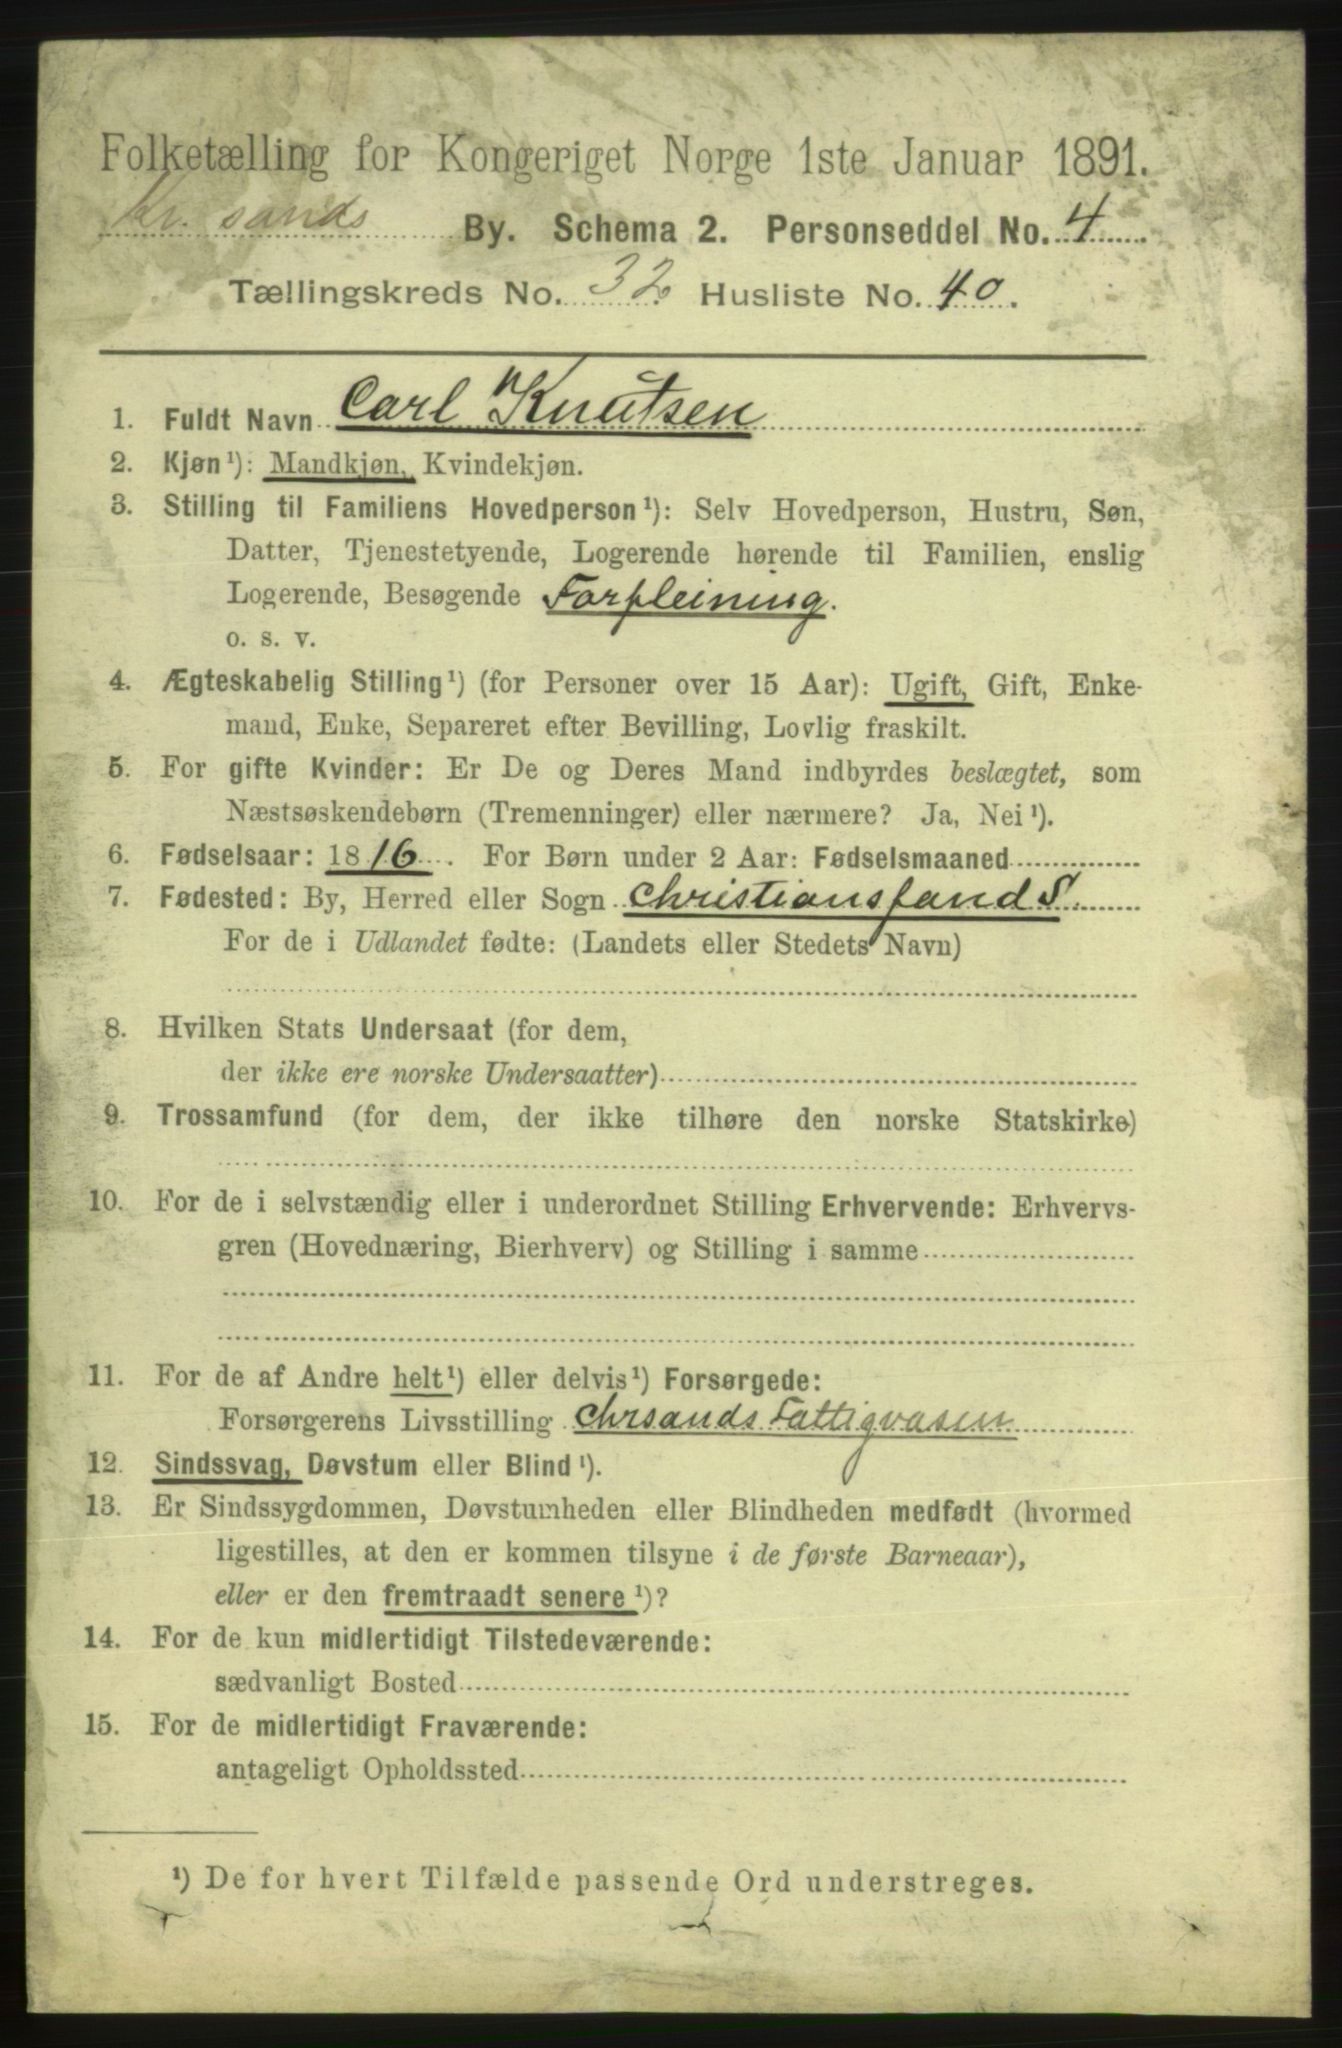 Folketælling for Kongeriget Norge 1ste Januar 1891.
Kr. sands By. Schema 2. Personseddel No. 4
Tællingskreds No. 32 Husliste No. 40.
1. Fuldt Navn Carl Knutsen
2. Kjøn¹): Mandkjøn, Kvindekjøn.
3. Stilling til Familiens Hovedperson¹): Selv Hovedperson, Hustru, Søn,
Datter, Tjenestetyende, Logerende hørende til Familien, enslig
Logerende, Besøgende Forpleining.
o. s. v.
4. Ægteskabelig Stilling¹) (for Personer over 15 Aar): Ugift, Gift, Enke-
mand, Enke, Separeret efter Bevilling, Lovlig fraskilt.
5. For gifte Kvinder: Er De og Deres Mand indbyrdes beslægtet, som
Næstsøskendebørn (Tremenninger) eller nærmere? Ja, Nei¹).
6. Fødselsaar: 1816. For Børn under 2 Aar: Fødselsmaaned
7. Fødested: By, Herred eller Sogn Christianssand S.
For de i Udlandet fødte: (Landets eller Stedets Navn)
8. Hvilken Stats Undersaat (for dem,
der ikke ere norske Undersaatter)
9. Trossamfund (for dem, der ikke tilhøre den norske Statskirke)
10. For de i selvstændig eller i underordnet Stilling Erhvervende: Erhvervs-
gren (Hovednæring, Bierhverv) og Stilling i samme
11. For de af Andre helt¹) eller delvis¹) Forsørgede:
Forsørgerens Livsstilling Chrsands Fattigvasen
12. Sindssvag, Døvstum eller Blind¹).
13. Er Sindssygdommen, Døvstumheden eller Blindheden medfødt (hvormed
ligestilles, at den er kommen tilsyne i de første Barneaar),
eller er den fremtraadt senere¹)?
14. For de kun midlertidigt Tilstedeværende:
sædvanligt Bosted
15. For de midlertidigt Fraværende:
antageligt Opholdssted
¹) De for hvert Tilfælde passende Ord understreges.